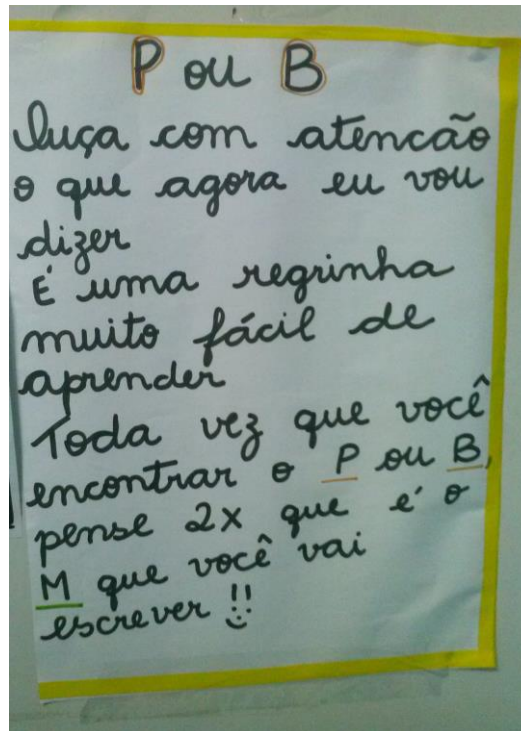 P ou B
Ouça com atencão
o que agora eu vou
dizer
É uma regrinha
muito fácil de
aprender
Toda vez que você
encontrar o P ou B,
pense 2x que é o
M que você vai
escrever !!